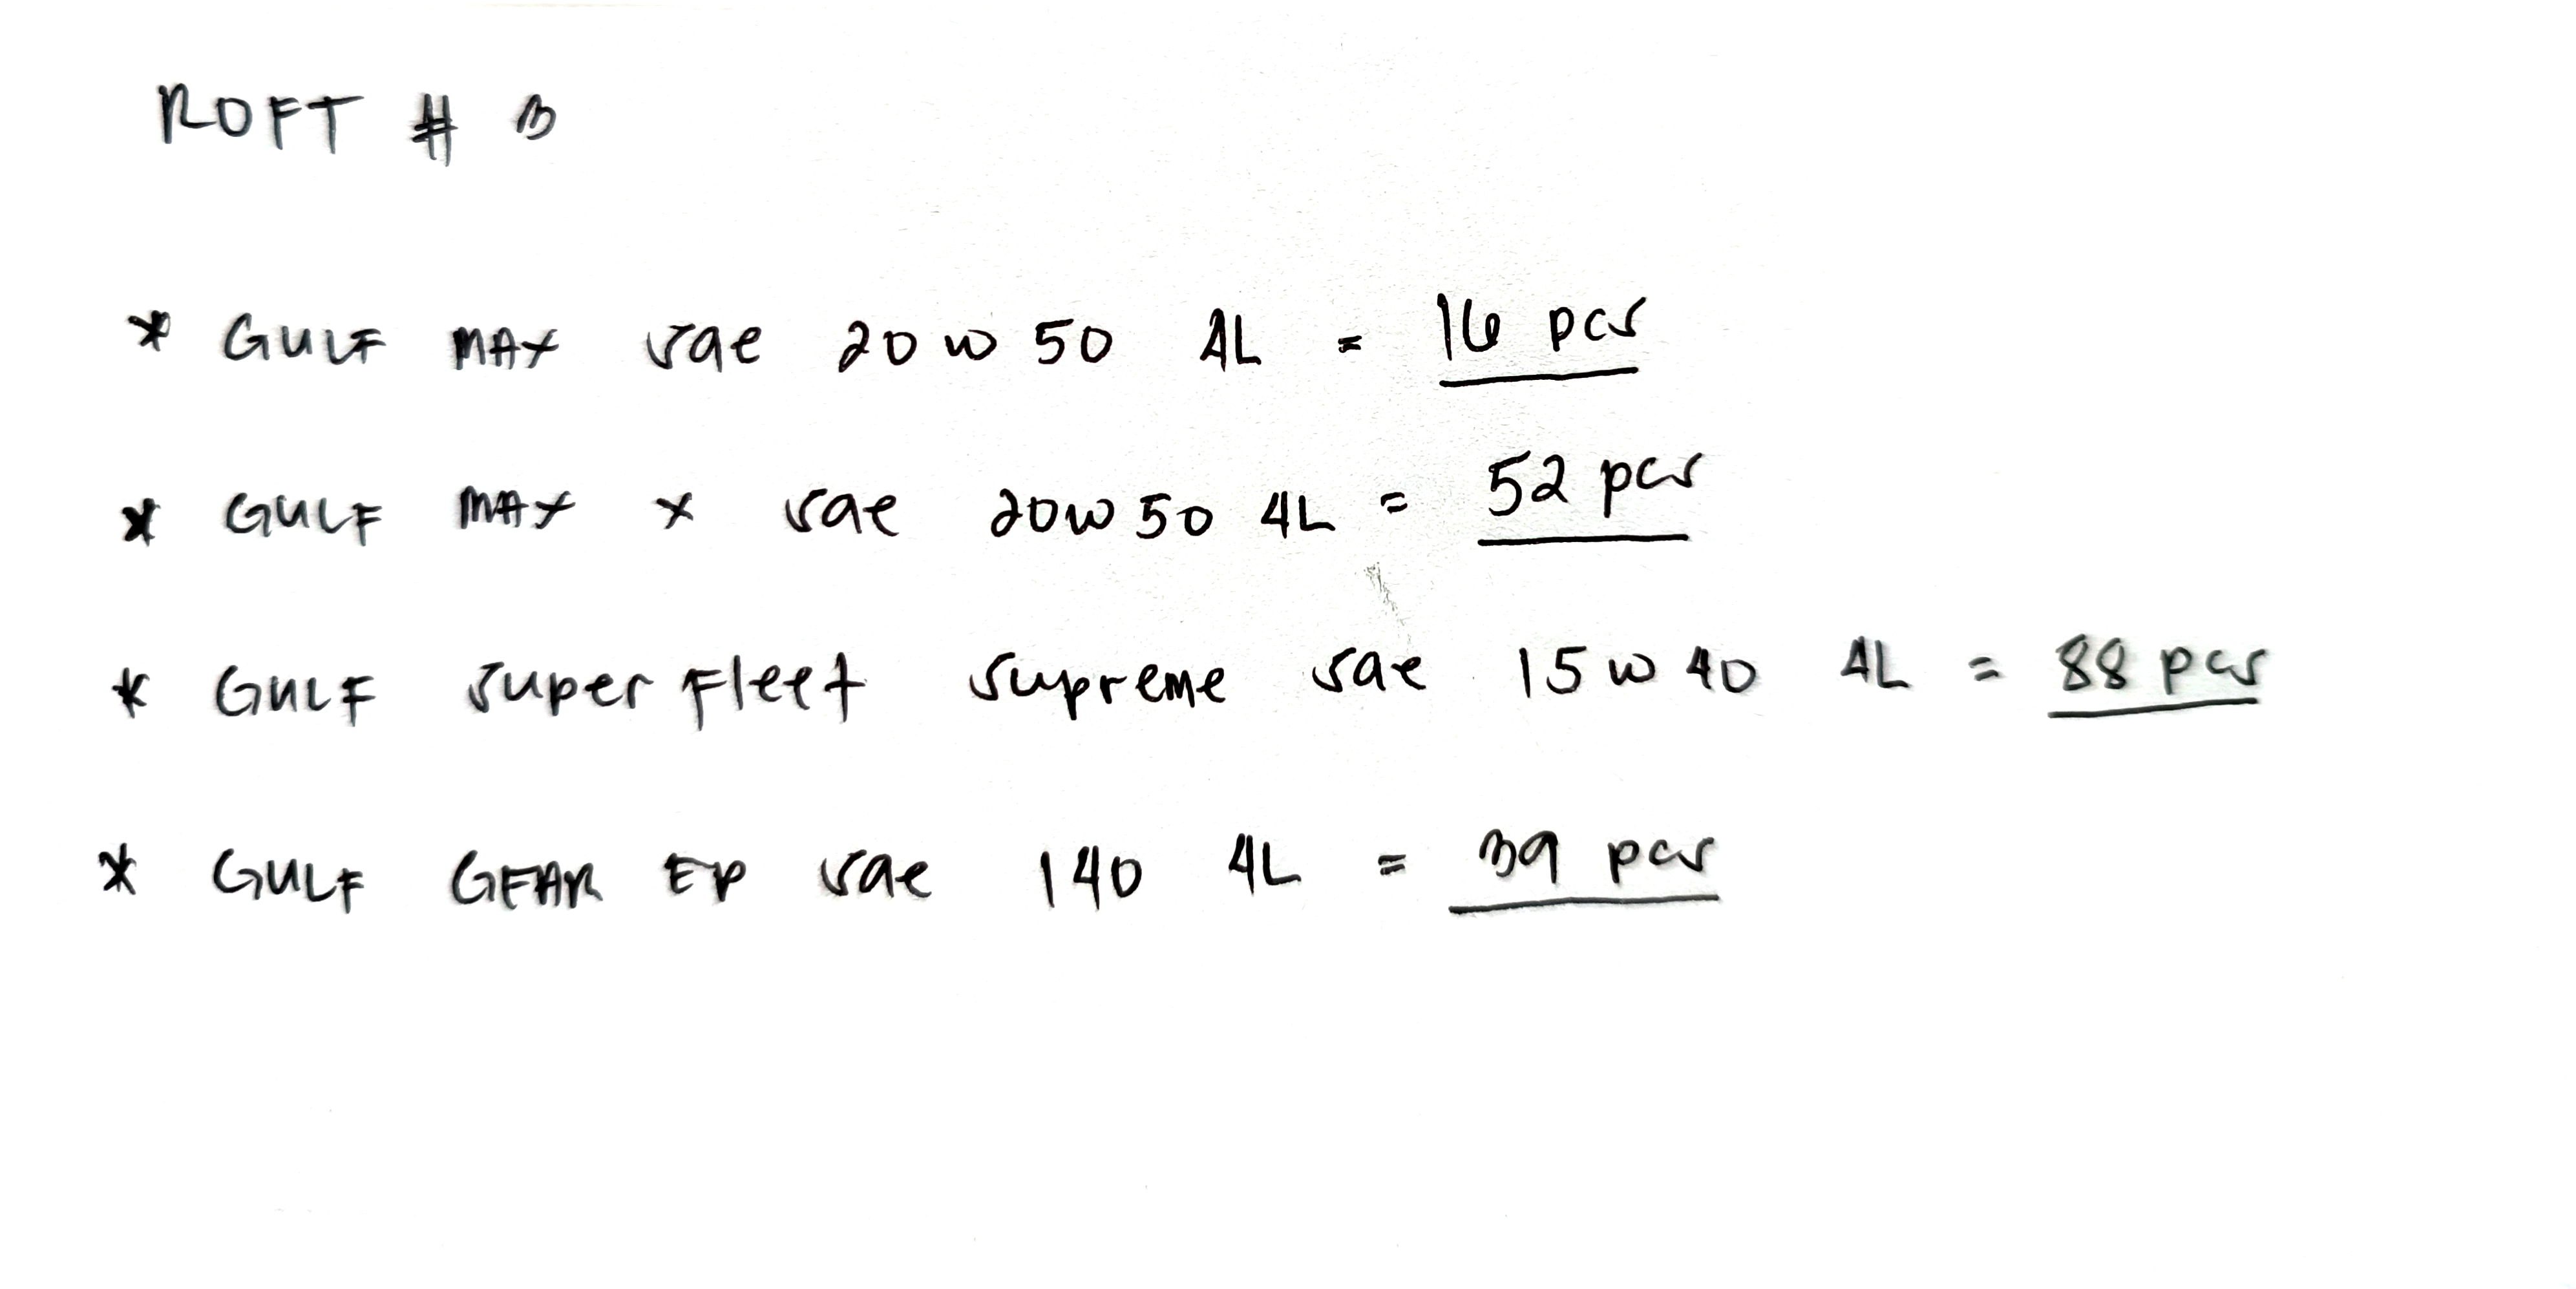 ROFT # 3
* GULF MAX sae 20 w 50 4L = 16 pcs
* GULF MAX x sae 20w 50 4L = 52 pcs
* GULF super Fleet supreme sae 15 w 40 4L = 88 pcs
* GULF GEAR EP sae 140 4L = 39 pcs